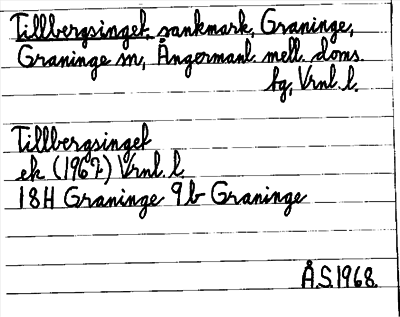 Tillbergsinget sankmark, Graninge,
Graninge sn, Ångermanl. mell. doms.
bg, Vrnl. l.
Tillbergsinget
ek (1967) Vrnl. l.
18H Graninge 9b Graninge
Å.S. 1968.